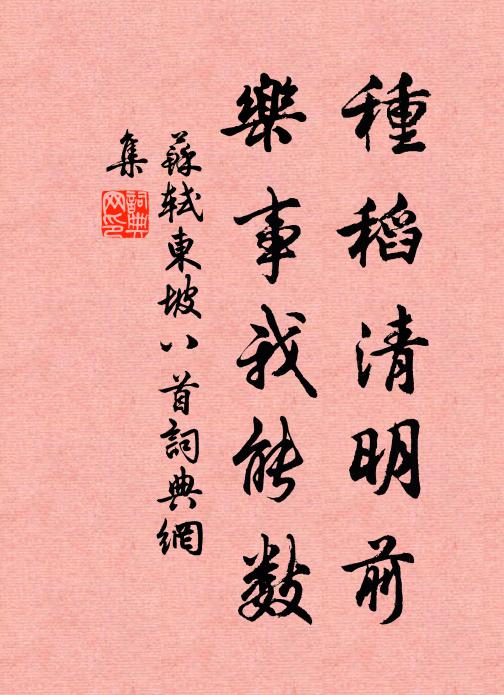 種稻清明前
樂事我能數
蘇軾東坡八首詞典網
集
詞典网印